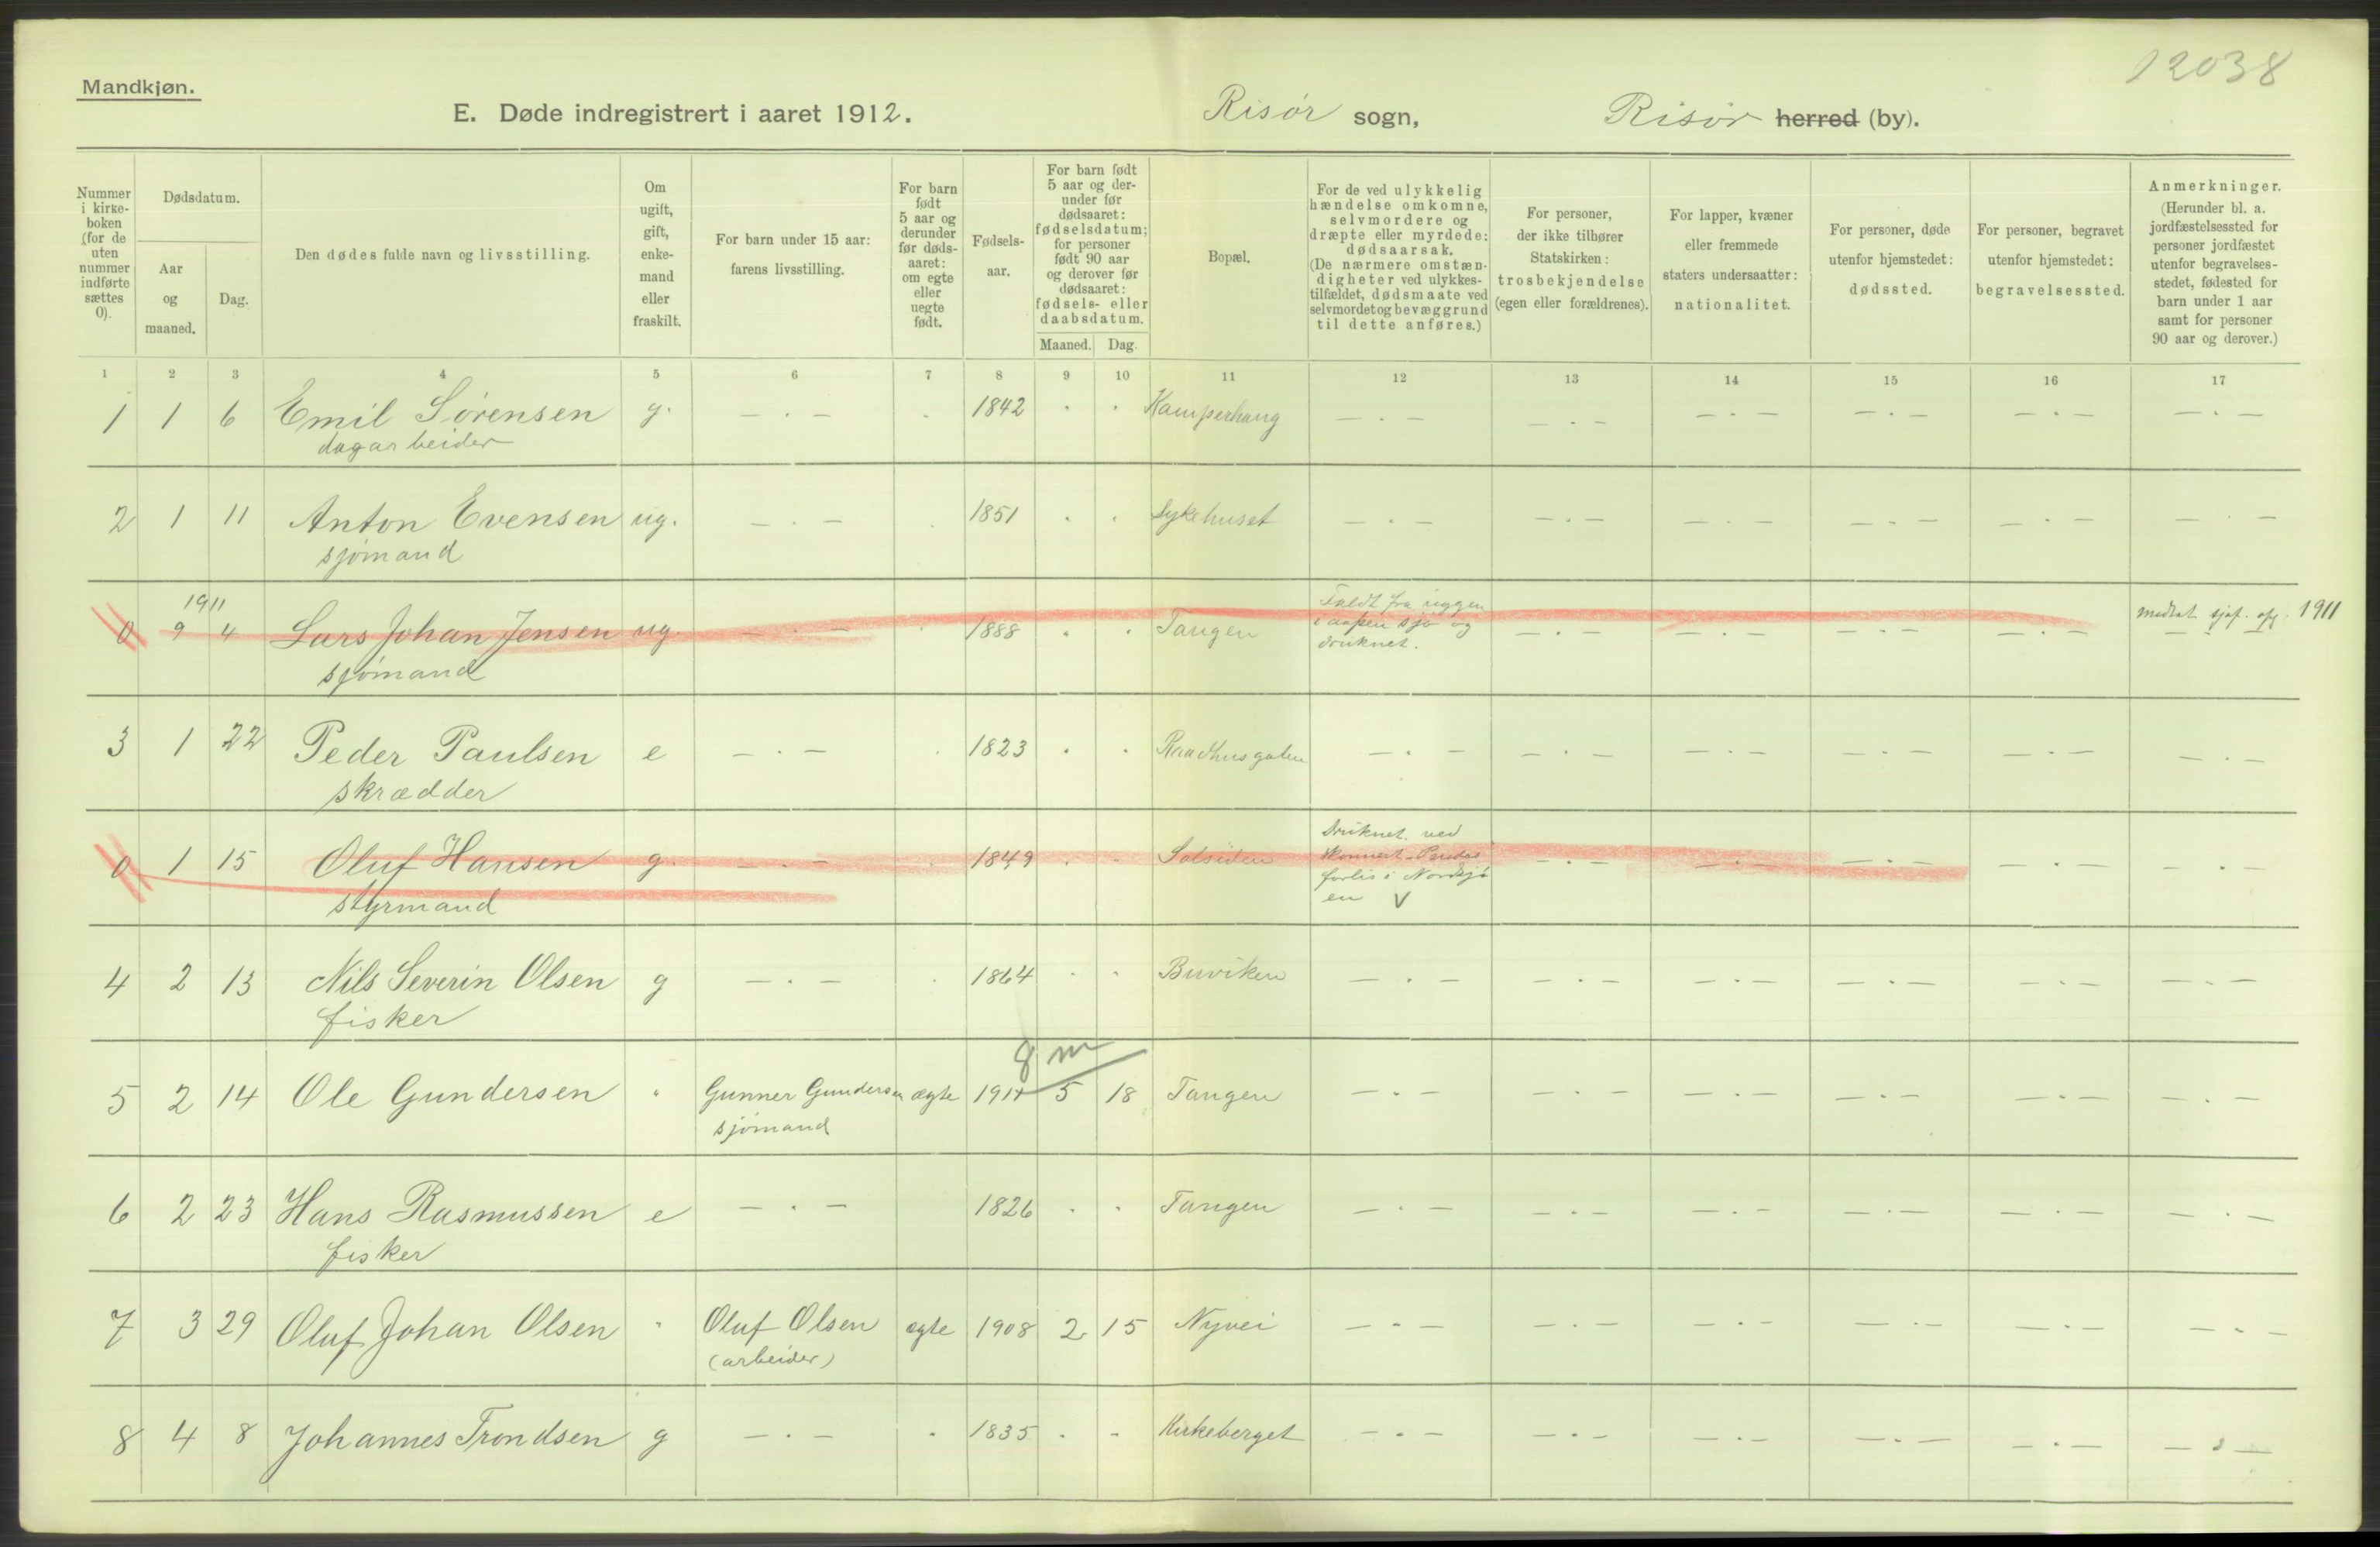 12038
Mandkjøn.
E. Døde indregistrert i aaret 1912. Risør sogn, Risør herred (by).
Nummer i kirke-boken (for de uten nummer indførte sættes 0).
Dødsdatum.
Aar og maaned.
Dag.
Den dødes fulde navn og livsstilling.
Om ugift, gift, enke-mand eller fraskilt.
For barn under 15 aar: farens livsstilling.
For barn født 5 aar og derunder før døds-aaret: om egte eller uegte født.
Fødsels-aar.
For barn født 5 aar og der-under før dødsaaret: fødselsdatum; for personer født 90 aar og derover før dødsaaret: fødsels- eller daabsdatum.
Maaned. Dag.
Bopæl.
For de ved ulykkelig hændelse omkomne, selvmordere og dræpte eller myrdede: dødsaarsak. (De nærmere omstæn-digheter ved ulykkes-tilfældet, dødsmaate ved selvmordet og bevæggrund til dette anføres.)
For personer, der ikke tilhører Statskirken: trosbekjendelse (egen eller forældrenes).
For lapper, kvæner eller fremmede staters undersaatter: nationalitet.
For personer, døde utenfor hjemstedet: dødssted.
For personer, begravet utenfor hjemstedet: begravelsessted.
Anmerkninger. (Herunder bl. a. jordfæstelsessted for personer jordfæstet utenfor begravelses-stedet, fødested for barn under 1 aar samt for personer 90 aar og derover.)
1 2 3 4 5 6 7 8 9 10 11 12 13 14 15 16 17
1 1 6 Emil Sørensen g. — . — . 1842 . . Kamperhaug — . — — . — — . — — . — — . — — . —
dagarbeider
2 1 11 Anton Evensen ug. — . — . 1851 . . Sykehuset — . — — . — — . — — . — — . — — . —
sjømand
1911
0 9 4 Lars Johan Jensen ug. — . — . 1888 . . Tangen Faldt fra riggen — . — — . — — . — — . — medtat sjøf. opg. 1911
i aapen sjø og
druknet.
sjømand
3 1 22 Peder Paulsen e — . — . 1823 . . Raadhusgaten — . — — . — — . — — . — — . — — . —
skrædder
0 1 15 Oluf Hansen g. — . — . 1849 . . Solsiden Druknet ved — . — — . — — . — — . — — . —
forlis i Nordsjø
en V
styrmand
4 2 13 Nils Severin Olsen g — . — . 1864 . . Buviken — . — — . — — . — — . — — . — — . —
fisker
8 m
5 2 14 Ole Gundersen " Gunner Gundersen ægte 1911 5 18 Tangen — . — — . — — . — — . — — . — — . —
sjømand
6 2 23 Hans Rasmussen e — . — 1826 . . Tangen — . — — . — — . — — . — — . — — . —
fisker
7 3 29 Oluf Johan Olsen " Oluf Olsen ægte 1908 2 15 Nyvei — . — — . — — . — — . — — . — — . —
(arbeider)
8 4 8 Johannes Trondsen g — . — . 1835 . . Kirkeberget — . — — . — — . — — . — — . — — . —